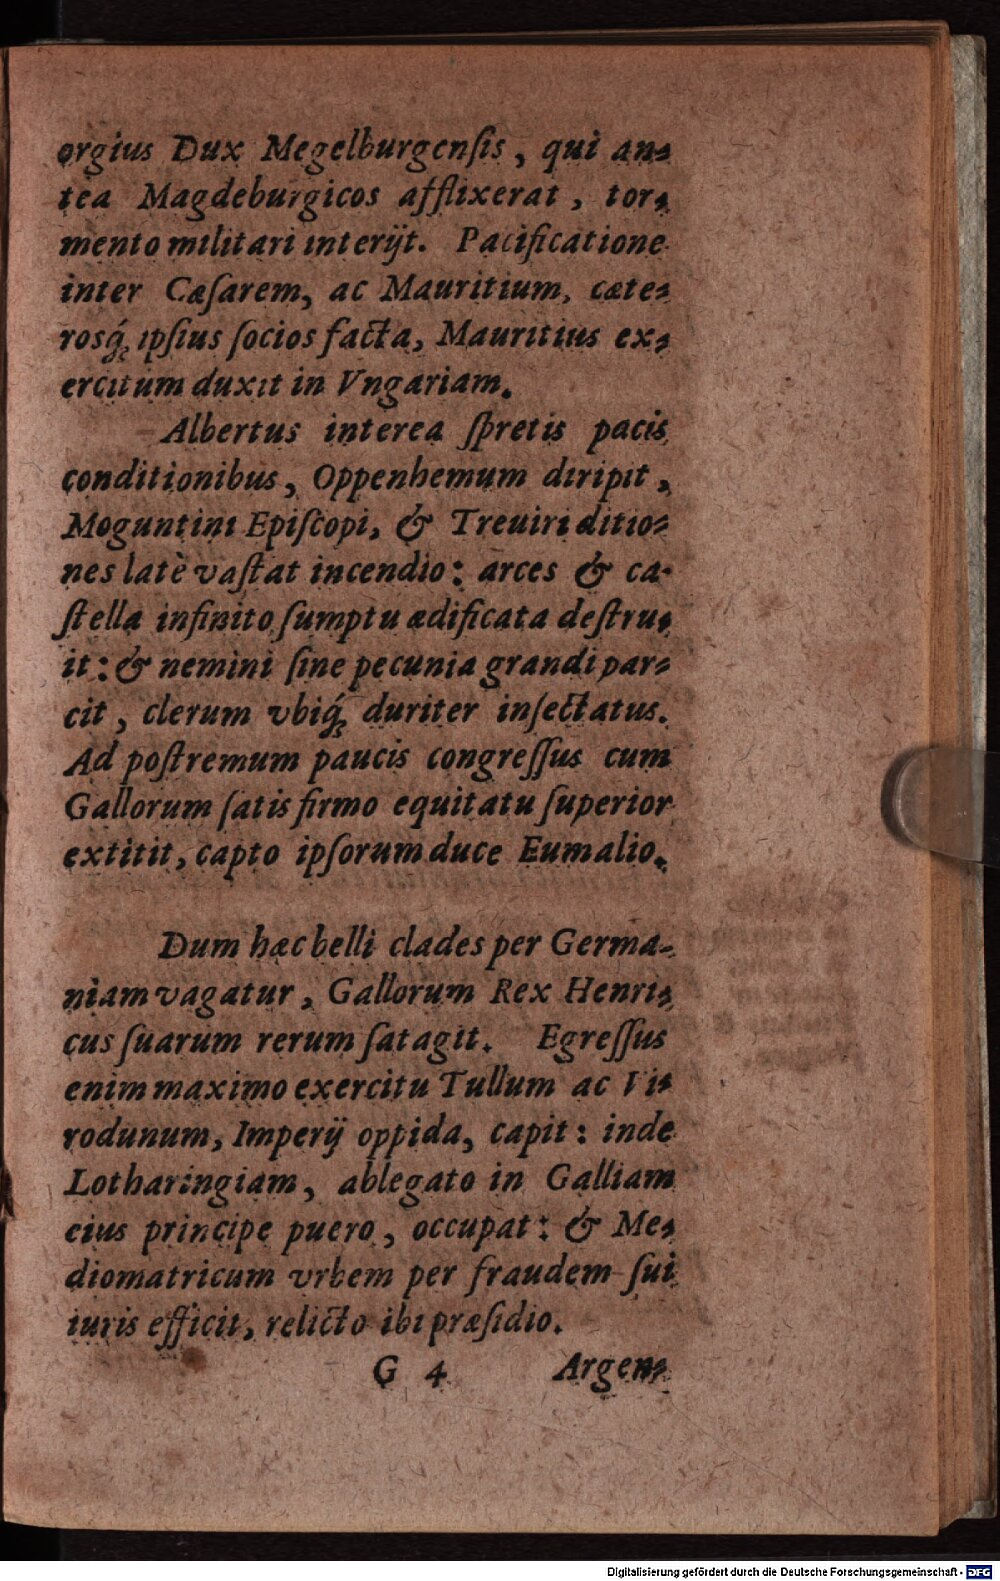 orgius Dux Megelburgenſis, qui an-
tea Magdeburgicos afflixerat, tor-
mento militari interijt. Pacificatione
inter Cæſarem, ac Mauritium, cæte-
roſq́ꝫ ipſius ſocios facta, Mauritius ex-
ercitum duxit in Vngariam.
Albertus interea ſpretis pacis
conditionibus, Oppenhemum diripit,
Moguntini Epiſcopi, & Treuiri ditio-
nes latè vaſtat incendio: arces & ca-
ſtella infinito ſumptu ædificata deſtru-
it: & nemini ſine pecunia grandi par-
cit, clerum vbiq́ꝫ duriter inſectatus.
Ad poſtremum paucis congreſſus cum
Gallorum ſatis firmo equitatu ſuperior
extitit, capto ipſorum duce Eumalio.
Dum hæc belli clades per Germa-
niam vagatur, Gallorum Rex Henri-
cus ſuarum rerum ſatagit. Egreſſus
enim maximo exercitu Tullum ac Vi-
rodunum, Imperij oppida, capit: inde
Lotharingiam, ablegato in Galliam
eius principe puero, occupat: & Me-
diomatricum vrbem per fraudem ſui
iuris efficit, relicto ibi præſidio.
G 4 Argen-
Digitalisierung gefördert durch die Deutsche Forschungsgemeinschaft - DFG